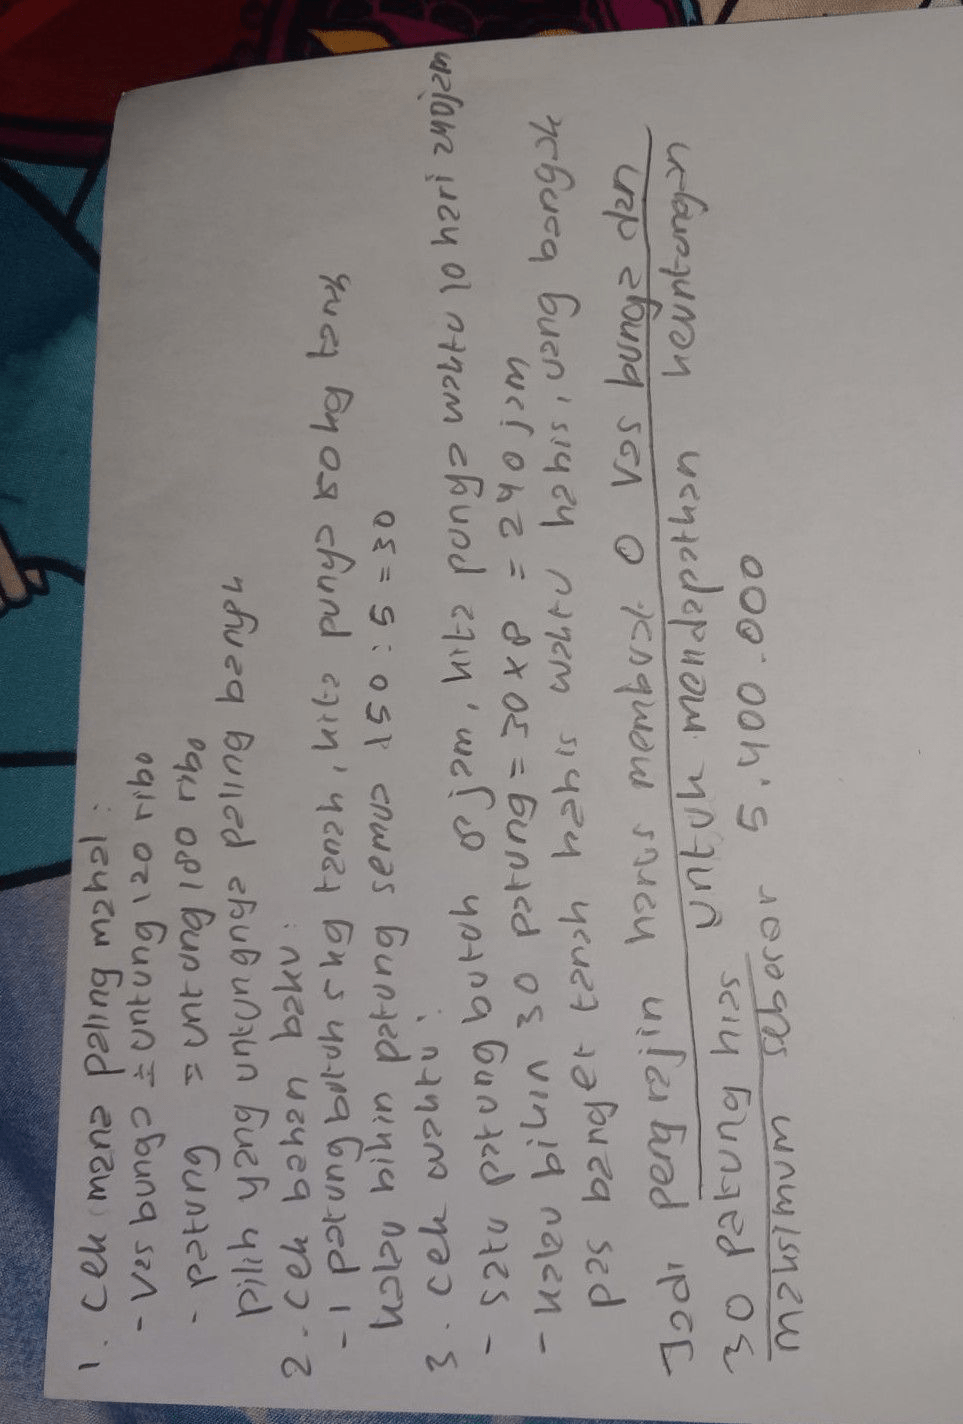 1. Cek mana paling mahal :
- Vas bunga = untung 120 ribo
- patung = untung 180 ribo
pilih yang untungnya paling banyak
2. Cek bahan baku :
- 1 patung butuh 5 kg tanah, kita punya 150 kg tank
kalau bikin patung semua 150 : 5 = 30
3. Cek waktu :
- satu patung butuh 8 jam, kita punya waktu 10 hari anajian
- kalau bikin 30 patung = 30 x 8 = 240 jam
pas banget tanah habis waktu habis, uang banyak
Jadi pengrajin harus membuat 0 vas bunga dan
30 patung hias untuk mendapatkan keuntungan
maksimum sebesar 5.400.000